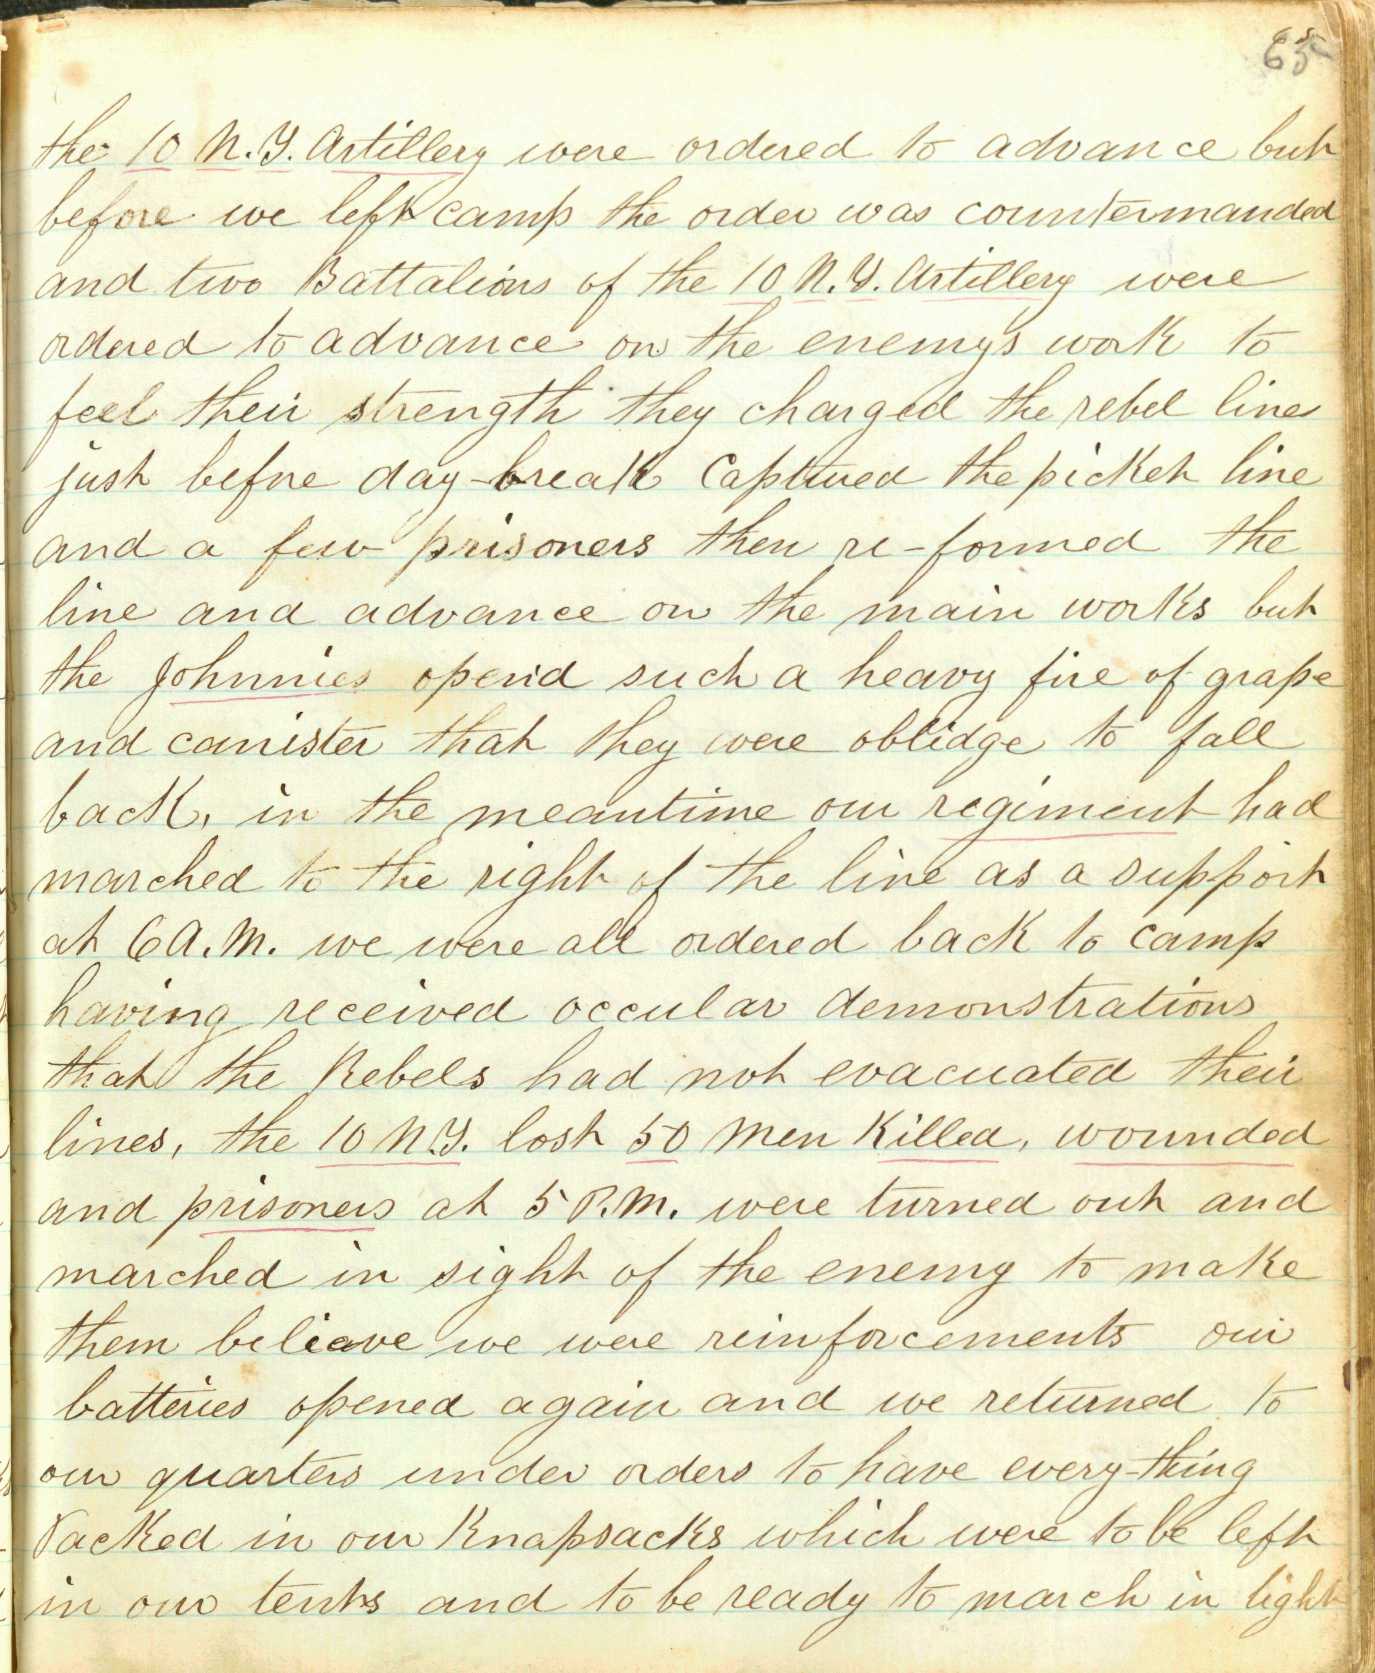 65
the 10 N.Y. Artillery were ordered to advance but
before we left camp the order was countermanded
and two Battalions of the 10 N.Y. Artillery were
ordered to advance on the enemys work to
feel their strength they charged the rebel line
just before day-break Captured the picket line
and a few prisoners then re-formed the
line and advance on the main works but
the Johnnies open'd such a heavy fire of grape
and canister that they were oblidge to fall
back, in the meantime our regiment had
marched to the right of the line as a support
at 6 A.M. we were all ordered back to camp
having received occular demonstrations
that the Rebels had not evacuated their
lines, the 10 N.Y. lost 50 men Killed, wounded
and prisoners at 5 P.M. were turned out and
marched in sight of the enemy to make
them beleave we were reinforcements our
batteries opened again and we returned to
our quarters under orders to have every-thing
Packed in our Knapsacks which were to be left
in our tents and to be ready to march in light